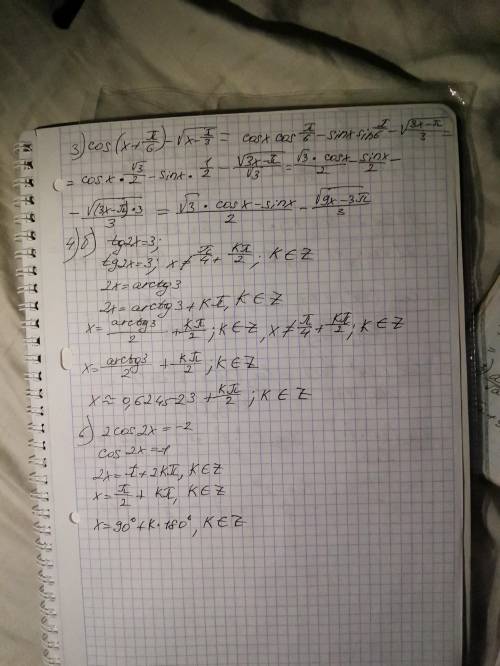 3) cos(x+π/6) - √(x-π/3) = cosx cos π/6 - sinx sin π/6 - √(3x-π)/3 =
= cosx · √3/2 - sinx · 1/2 - √(3x-π)/√3 = √3 · cosx/2 - sinx/2 -
- √((3x-π)·3)/3 = (√3 · cosx - sinx)/2 - √(9x-3π)/3
4) б) tg2x=3;
tg2x=3; x≠π/4+kπ/2; K∈Z
2x=arctg3
2x=arctg3+Kπ, K∈Z
x=arctg3/2+kπ/2; K∈Z, x≠π/4+kπ/2; K∈Z
x=arctg3/2+kπ/2, K∈Z
x≈0,624523+kπ/2; K∈Z
в) 2cos2x=-2
cos2x=-1
2x=π+2Kπ, K∈Z
x=π/2+Kπ, K∈Z
x=90°+K·180°, K∈Z